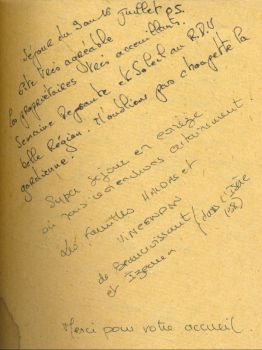 Séjour du 9 au 16 juillet 05.
été très agréable
les propriétaires très accueillants.
Semaine reposante et soleil au R.D.V
belle Région. N'oublions pas choupette la
gardienne.
Super séjour en ariège
on vous recommandera certainement.
Les familles
VINCENDON
de Beaucroissant
et Izeaux
(dans l'Isère
(38)
Merci pour votre accueil.